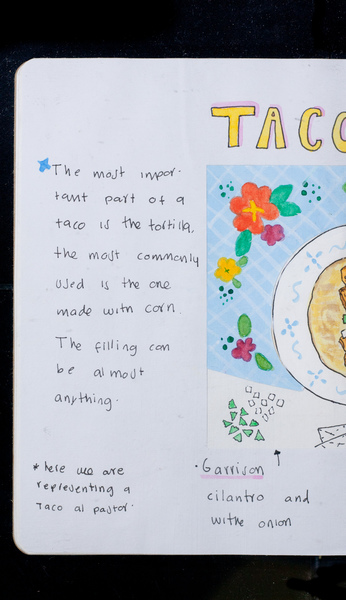 TACO
The most impor-
tant part of a
taco is the tortilla,
the most commonly
used is the one
made with corn.
The filling can
be almost
anything.
*here we are
representing a
Taco al pastor.
·Garrison
cilantro and
withe onion